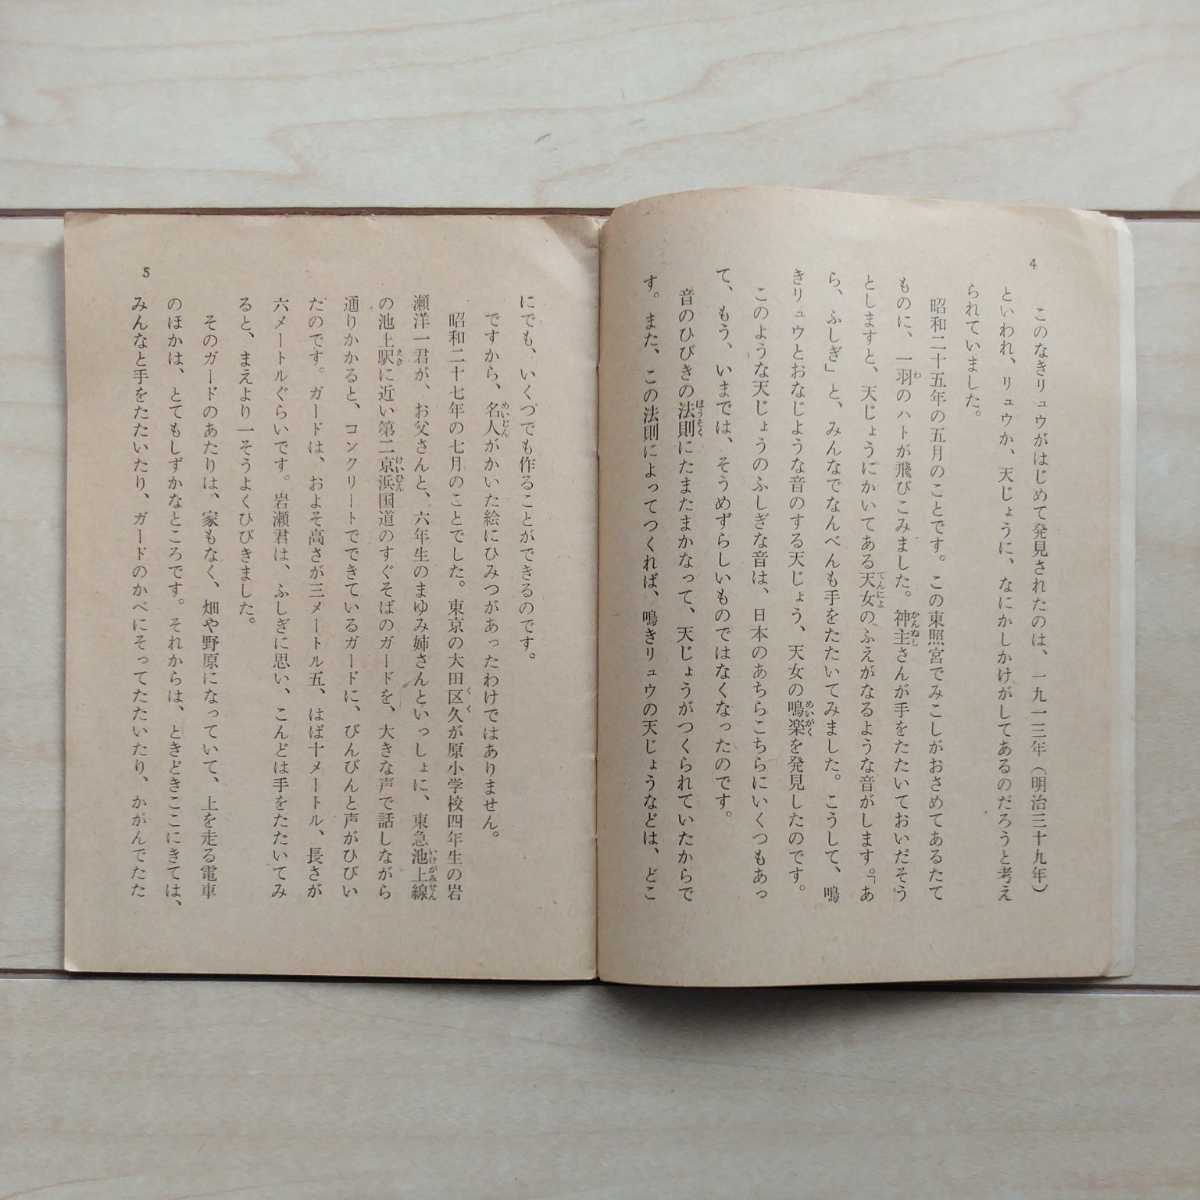 4
このなきリュウがはじめて発見されたのは、一九一三年（明治三十九年）
といわれ、リュウか、天じょうに、なにかしかけがしてあるのだろうと考え
られていました。
昭和二十五年の五月のことです。この東照宮でみこしがおさめてあるたて
ものに、一羽のハトが飛びこみました。神主さんが手をたたいておいだそう
としますと、天じょうにかいてある天女のふえがなるような音がします。「あ
ら、ふしぎ」と、みんなでなんべんも手をたたいてみました。こうして、鳴
きリュウとおなじような音のする天じょう、天女の鳴楽を発見したのです。
このような天じょうのふしぎな音は、日本のあちらこちらにいくつもあっ
て、もう、いまでは、そうめずらしいものではなくなったのです。
音のひびきの法則にたまたまかなって、天じょうがつくられていたからで
す。また、この法則によってつくれば、鳴きリュウの天じょうなどは、どこ
にでも、いくつでも作ることができるのです。
ですから、名人がかいた絵にひみつがあったわけではありません。
昭和二十七年の七月のことでした。東京の大田区久が原小学校四年生の岩
瀬洋一君が、お父さんと、六年生のまゆみ姉さんといっしょに、東急池上線
の池上駅に近い第二京浜国道のすぐそばのガードを、大きな声で話しながら
通りかかると、コンクリートでできているガードに、びんびんと声がひびい
たのです。ガードは、およそ高さが三メートル五、はば十メートル、長さが
六メートルぐらいです。岩瀬君は、ふしぎに思い、こんどは手をたたいてみ
ると、まえより一そうよくひびきました。
そのガードのあたりは、家もなく、畑や野原になっていて、上を走る電車
のほかは、とてもしずかなところです。それからは、ときどきここにきては、
みんなと手をたたいたり、ガードのかべにそってたたいたり、かがんでたた
5